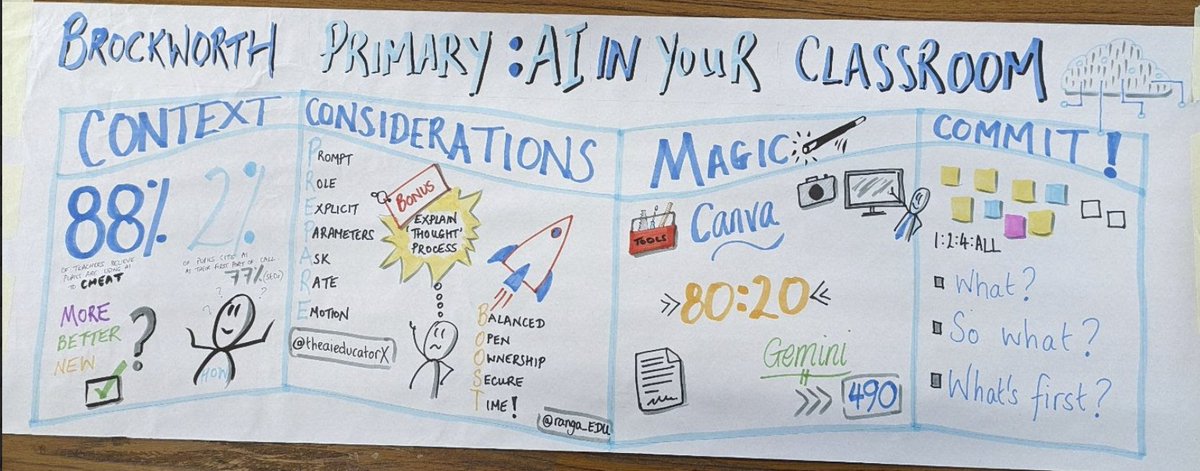 BROCKWORTH PRIMARY: AI IN YOUR CLASSROOM
CONTEXT
88%
OF TEACHERS BELIEVE
PUPILS ARE USING AI
TO CHEAT
2%
OF PUPILS CITE AI
AS THEIR FIRST PART OF CALL
77% (SEO)
MORE
BETTER
NEW
?
? ? ?
HOW
CONSIDERATIONS
PROMPT
ROLE
EXPLICIT
PARAMETERS
ASK
RATE
EMOTION
@theaieducatorX
BONUS
'EXPLAIN
'THOUGHT'
PROCESS
BALANCED
OPEN
OWNERSHIP
SECURE
TIME!
@ranga_EDU
MAGIC
TOOLS
Canva
80:20
Gemini
490
COMMIT!
1:2:4:ALL
What?
So what?
What's first?